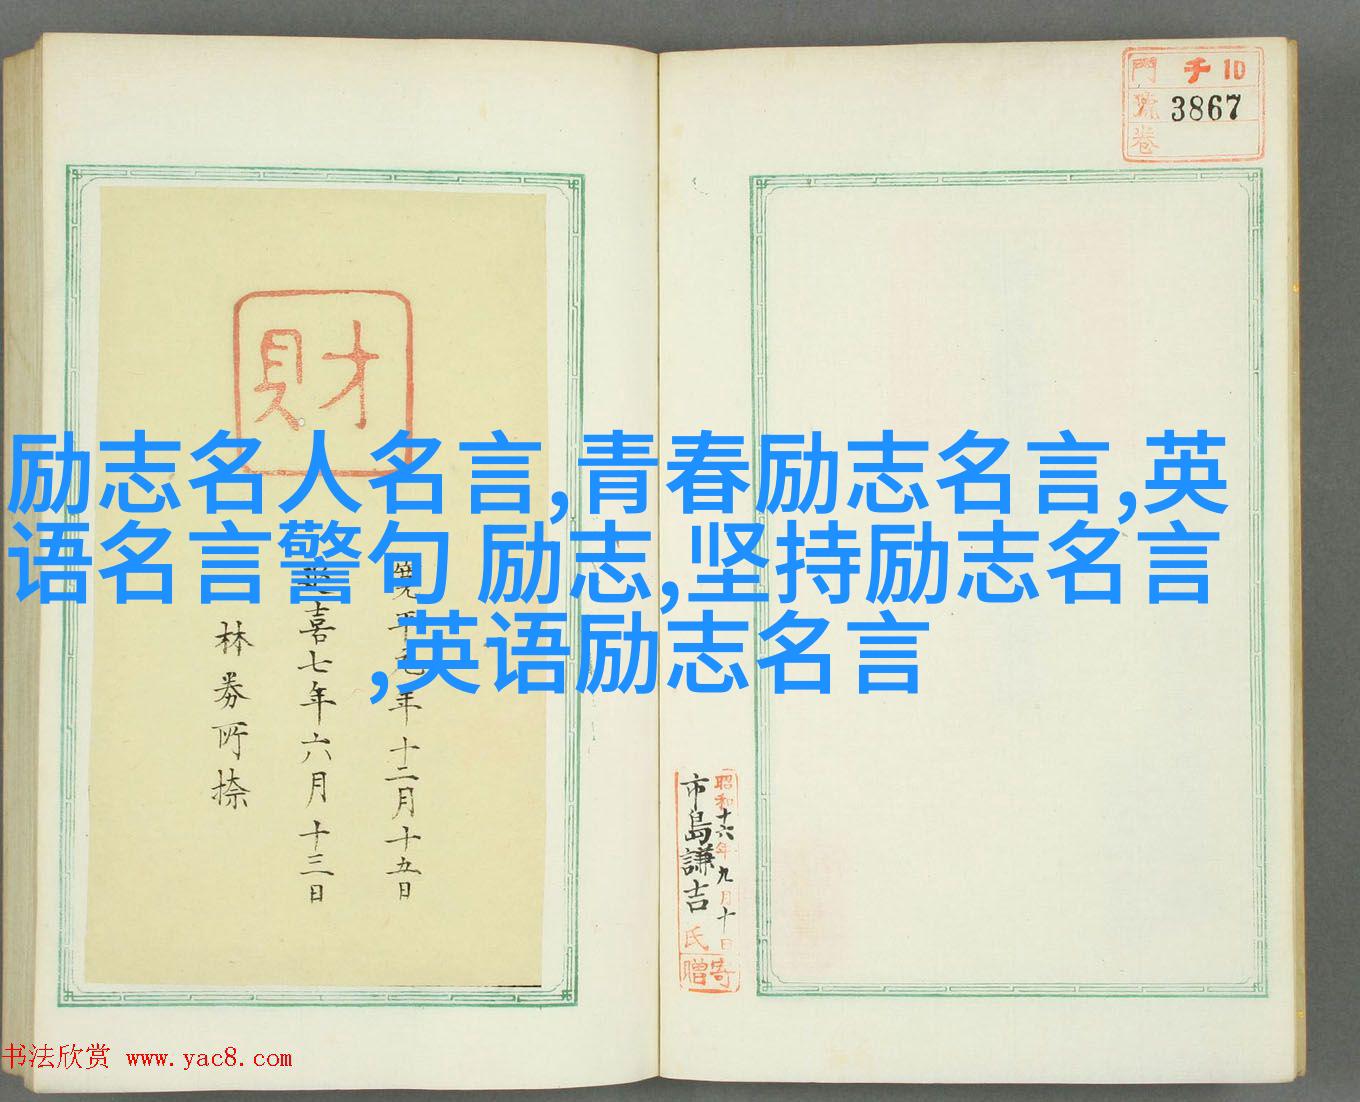 門 チ 10
號 3867
卷
財
励志名人名言,青春励志名言,英
语名言警句 励志,坚持励志名言
,英语励志名言
寛平元年十二月十五日
延喜七年六月十三日
昭和十六年九月十日
市島謙吉氏
寄贈
书法欣赏 www.yac8.com